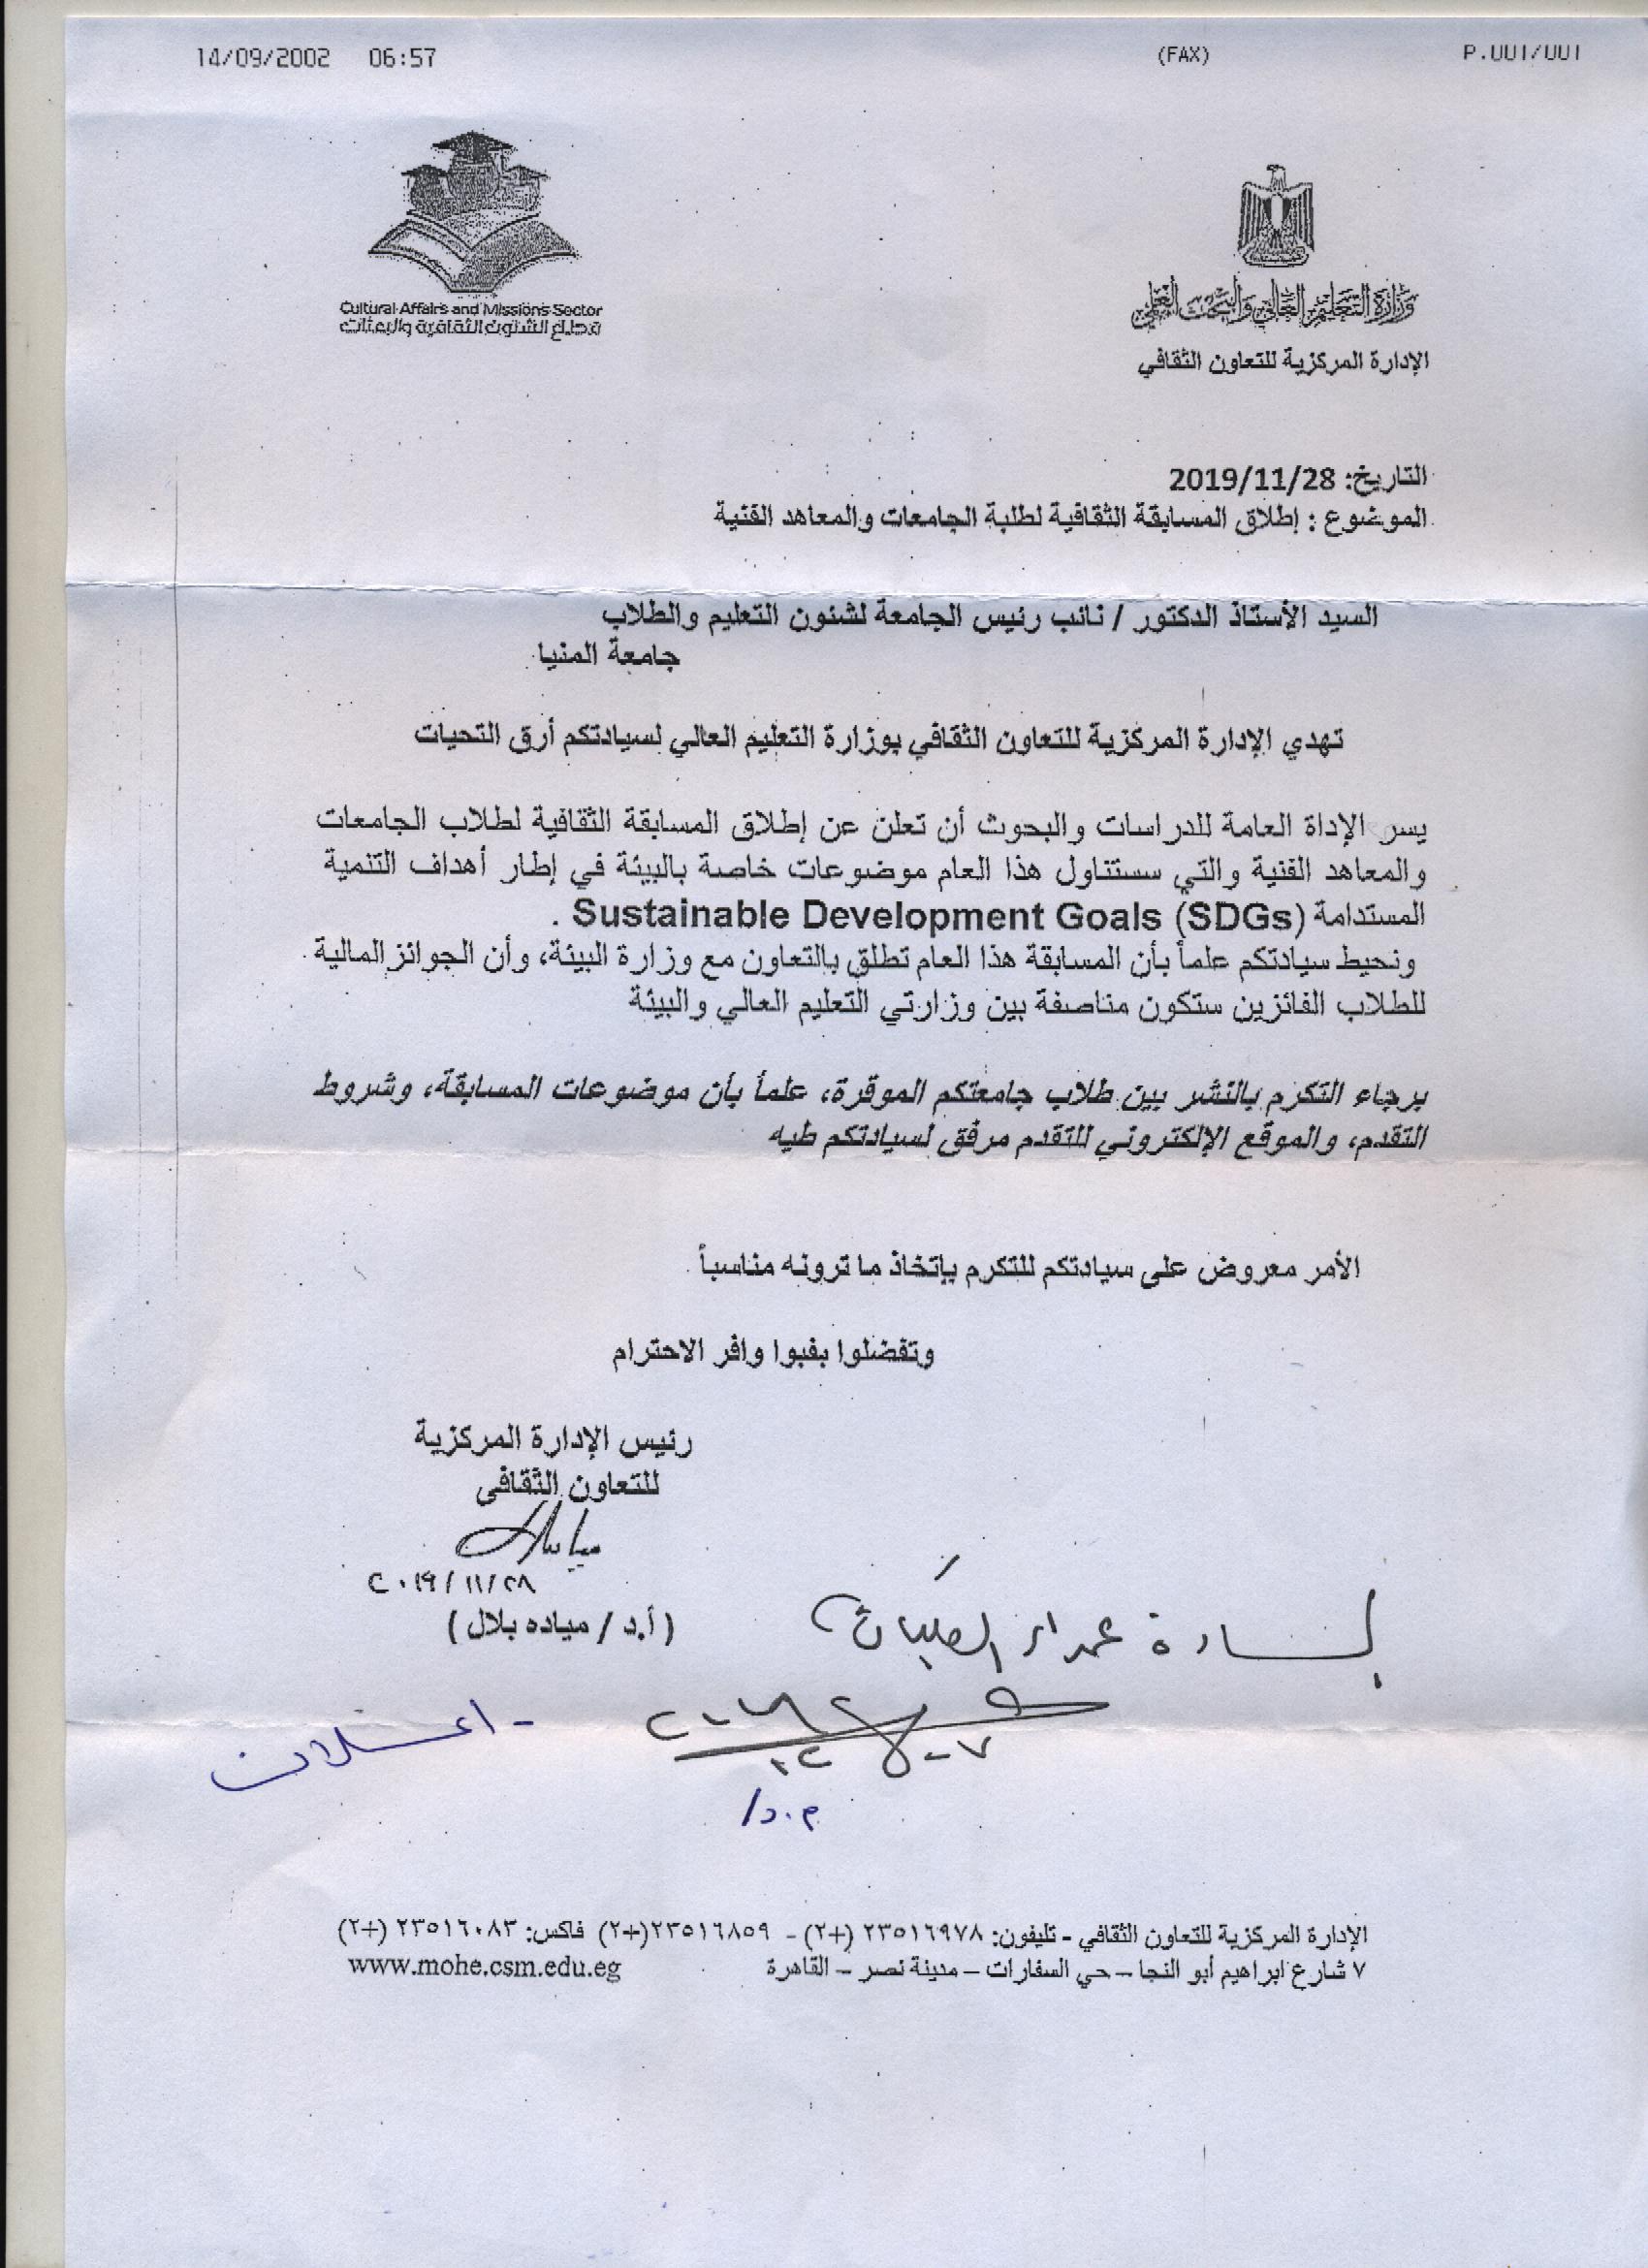 14/09/2002 06:57 (FAX) P.001/001
Cultural Affairs and Missions Sector
قطاع الشئون الثقافية والبعثات
وزارة التعليم العالي والبحث العلمي
الإدارة المركزية للتعاون الثقافي
التاريخ: 2019/11/28
الموضوع : إطلاق المسابقة الثقافية لطلبة الجامعات والمعاهد الفنية
السيد الأستاذ الدكتور / نائب رئيس الجامعة لشئون التعليم والطلاب
جامعة المنيا
تهدي الإدارة المركزية للتعاون الثقافي بوزارة التعليم العالي لسيادتكم أرق التحيات
يسر الإداة العامة للدراسات والبحوث أن تعلن عن إطلاق المسابقة الثقافية لطلاب الجامعات
والمعاهد الفنية والتي سستناول هذا العام موضوعات خاصة بالبيئة في إطار أهداف التنمية
المستدامة Sustainable Development Goals (SDGs) .
ونحيط سيادتكم علماً بأن المسابقة هذا العام تطلق بالتعاون مع وزارة البيئة، وأن الجوائز المالية
للطلاب الفائزين ستكون مناصفة بين وزارتي التعليم العالي والبيئة
برجاء التكرم بالنشر بين طلاب جامعتكم الموقرة، علماً بأن موضوعات المسابقة، وشروط
التقدم، والموقع الإلكتروني للتقدم مرفق لسيادتكم طيه
الأمر معروض على سيادتكم للتكرم بإتخاذ ما ترونه مناسباً
وتفضلوا بقبوا وافر الاحترام
رئيس الإدارة المركزية
للتعاون الثقافى
٢٠١٩/١١/٢٨
(أ.د / مياده بلال )
السادة عمداء الكليات
- اعلانات
م.د/
الإدارة المركزية للتعاون الثقافي - تليفون: ٢٣٥١٦٩٧٨ (+٢) - ٢٣٥١٦٨٥٩(+٢) فاكس: ٢٣٥١٦٠٨٣ (+٢)
٧ شارع ابراهيم أبو النجا – حي السفارات – مدينة نصر – القاهرة www.mohe.csm.edu.eg